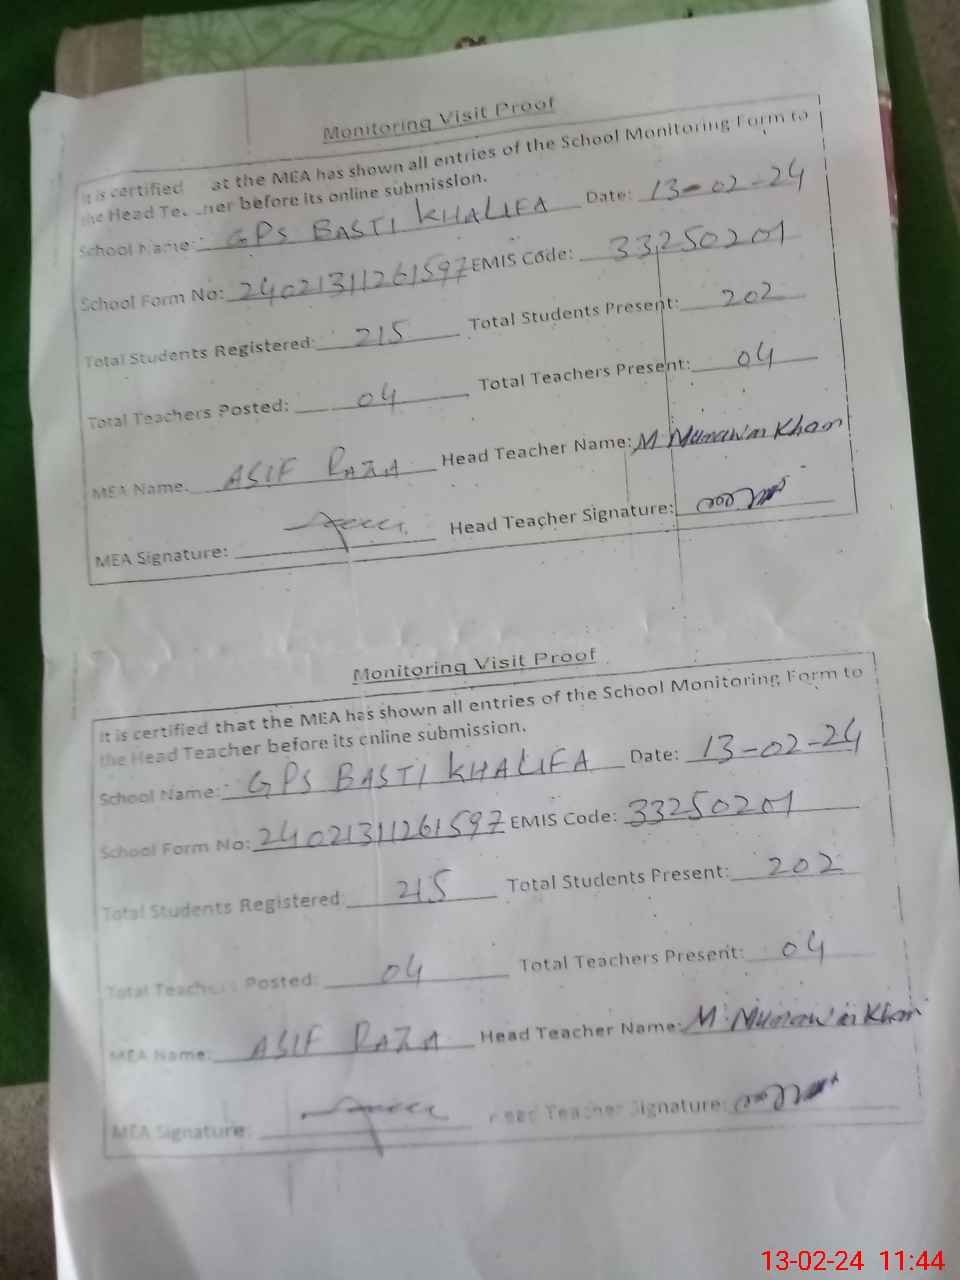 Monitoring Visit Proof
It is certified at the MEA has shown all entries of the School Monitoring Form to
the Head Teacher before its online submission.
School Name: GPS BASTI KHALIFA Date: 13-02-24
School Form No: 24021311261597 EMIS Code: 33250201
Total Students Registered: 215 Total Students Present: 202
Total Teachers Posted: 04 Total Teachers Present: 04
MEA Name. ASIF RAZA Head Teacher Name: M Munawar Khan
MEA Signature: Head Teacher Signature:
Monitoring Visit Proof
It is certified that the MEA has shown all entries of the School Monitoring Form to
the Head Teacher before its online submission.
School Name: GPS BASTI KHALIFA Date: 13-02-24
School Form No: 24021311261597 EMIS Code: 33250201
Total Students Registered: 215 Total Students Present: 202
Total Teachers Posted: 04 Total Teachers Present: 04
MEA Name: ASIF RAZA Head Teacher Name: M Munawar Khan
MEA Signature: Head Teacher Signature:
13-02-24 11:44